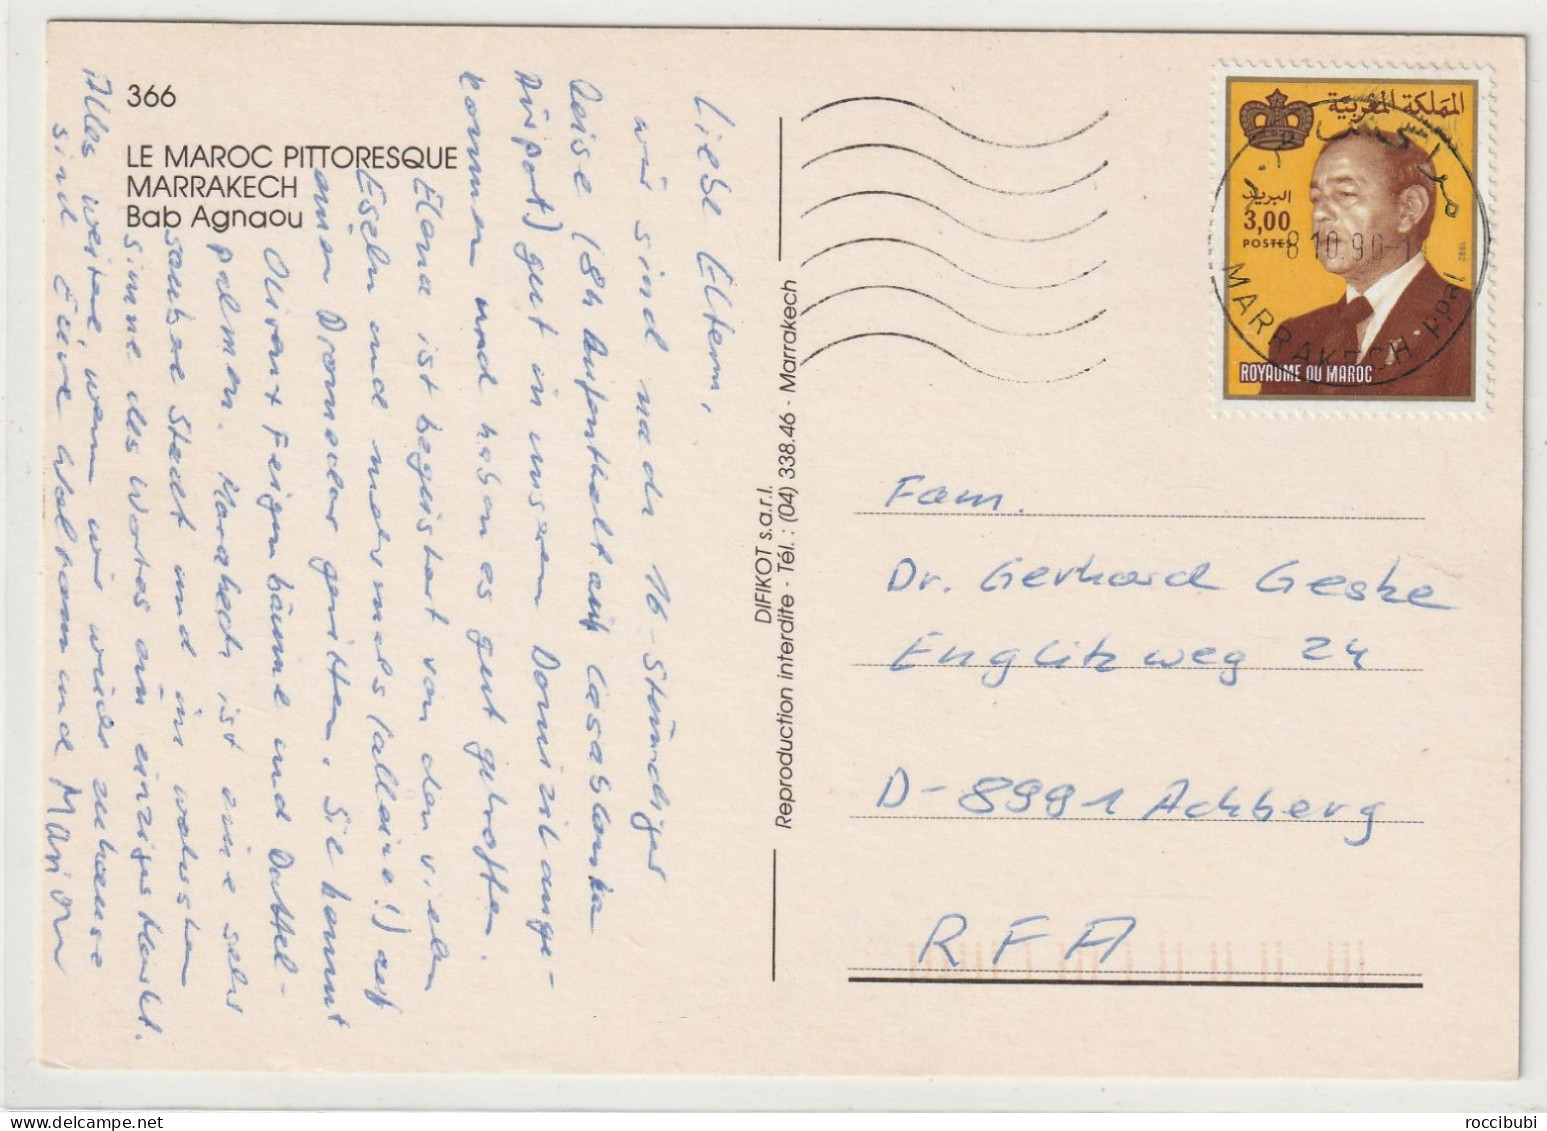 366
LE MAROC PITTORESQUE
MARRAKECH
Bab Agnaou
Liebe Eltern,
wir sind nach 16-Stündiger
Reise (8h Aufenthalt auf Casablanka
Airport) gut in unserem Domizil ange-
kommen und haben es gut getroffen.
Elena ist begeistert von den vielen
Eseln und mehrmals (alleine!) auf
einem Dromedar geritten. Sie kennt
Oliven + Feigenbäume und Dattel-
palmen. Marakech ist eine sehr
saubere Stadt und im wahrsten
Sinne des Wortes ein einziger Markt.
Alles weitere, wenn wir wieder zuhause
sind Eure Waltraud und Marion
DIFIKOT s.a.r.l.
Reproduction interdite - Tél. : (04) 338.46 - Marrakech
المملكة المغربية
البريد
3,00
POSTES
1982
ROYAUME DU MAROC
مراكش
8 10.90-1
MARRAKECH Ppal
Fam.
Dr. Gerhard Geske
Englitzweg 24
D-8991 Achberg
RFA
roccibubi